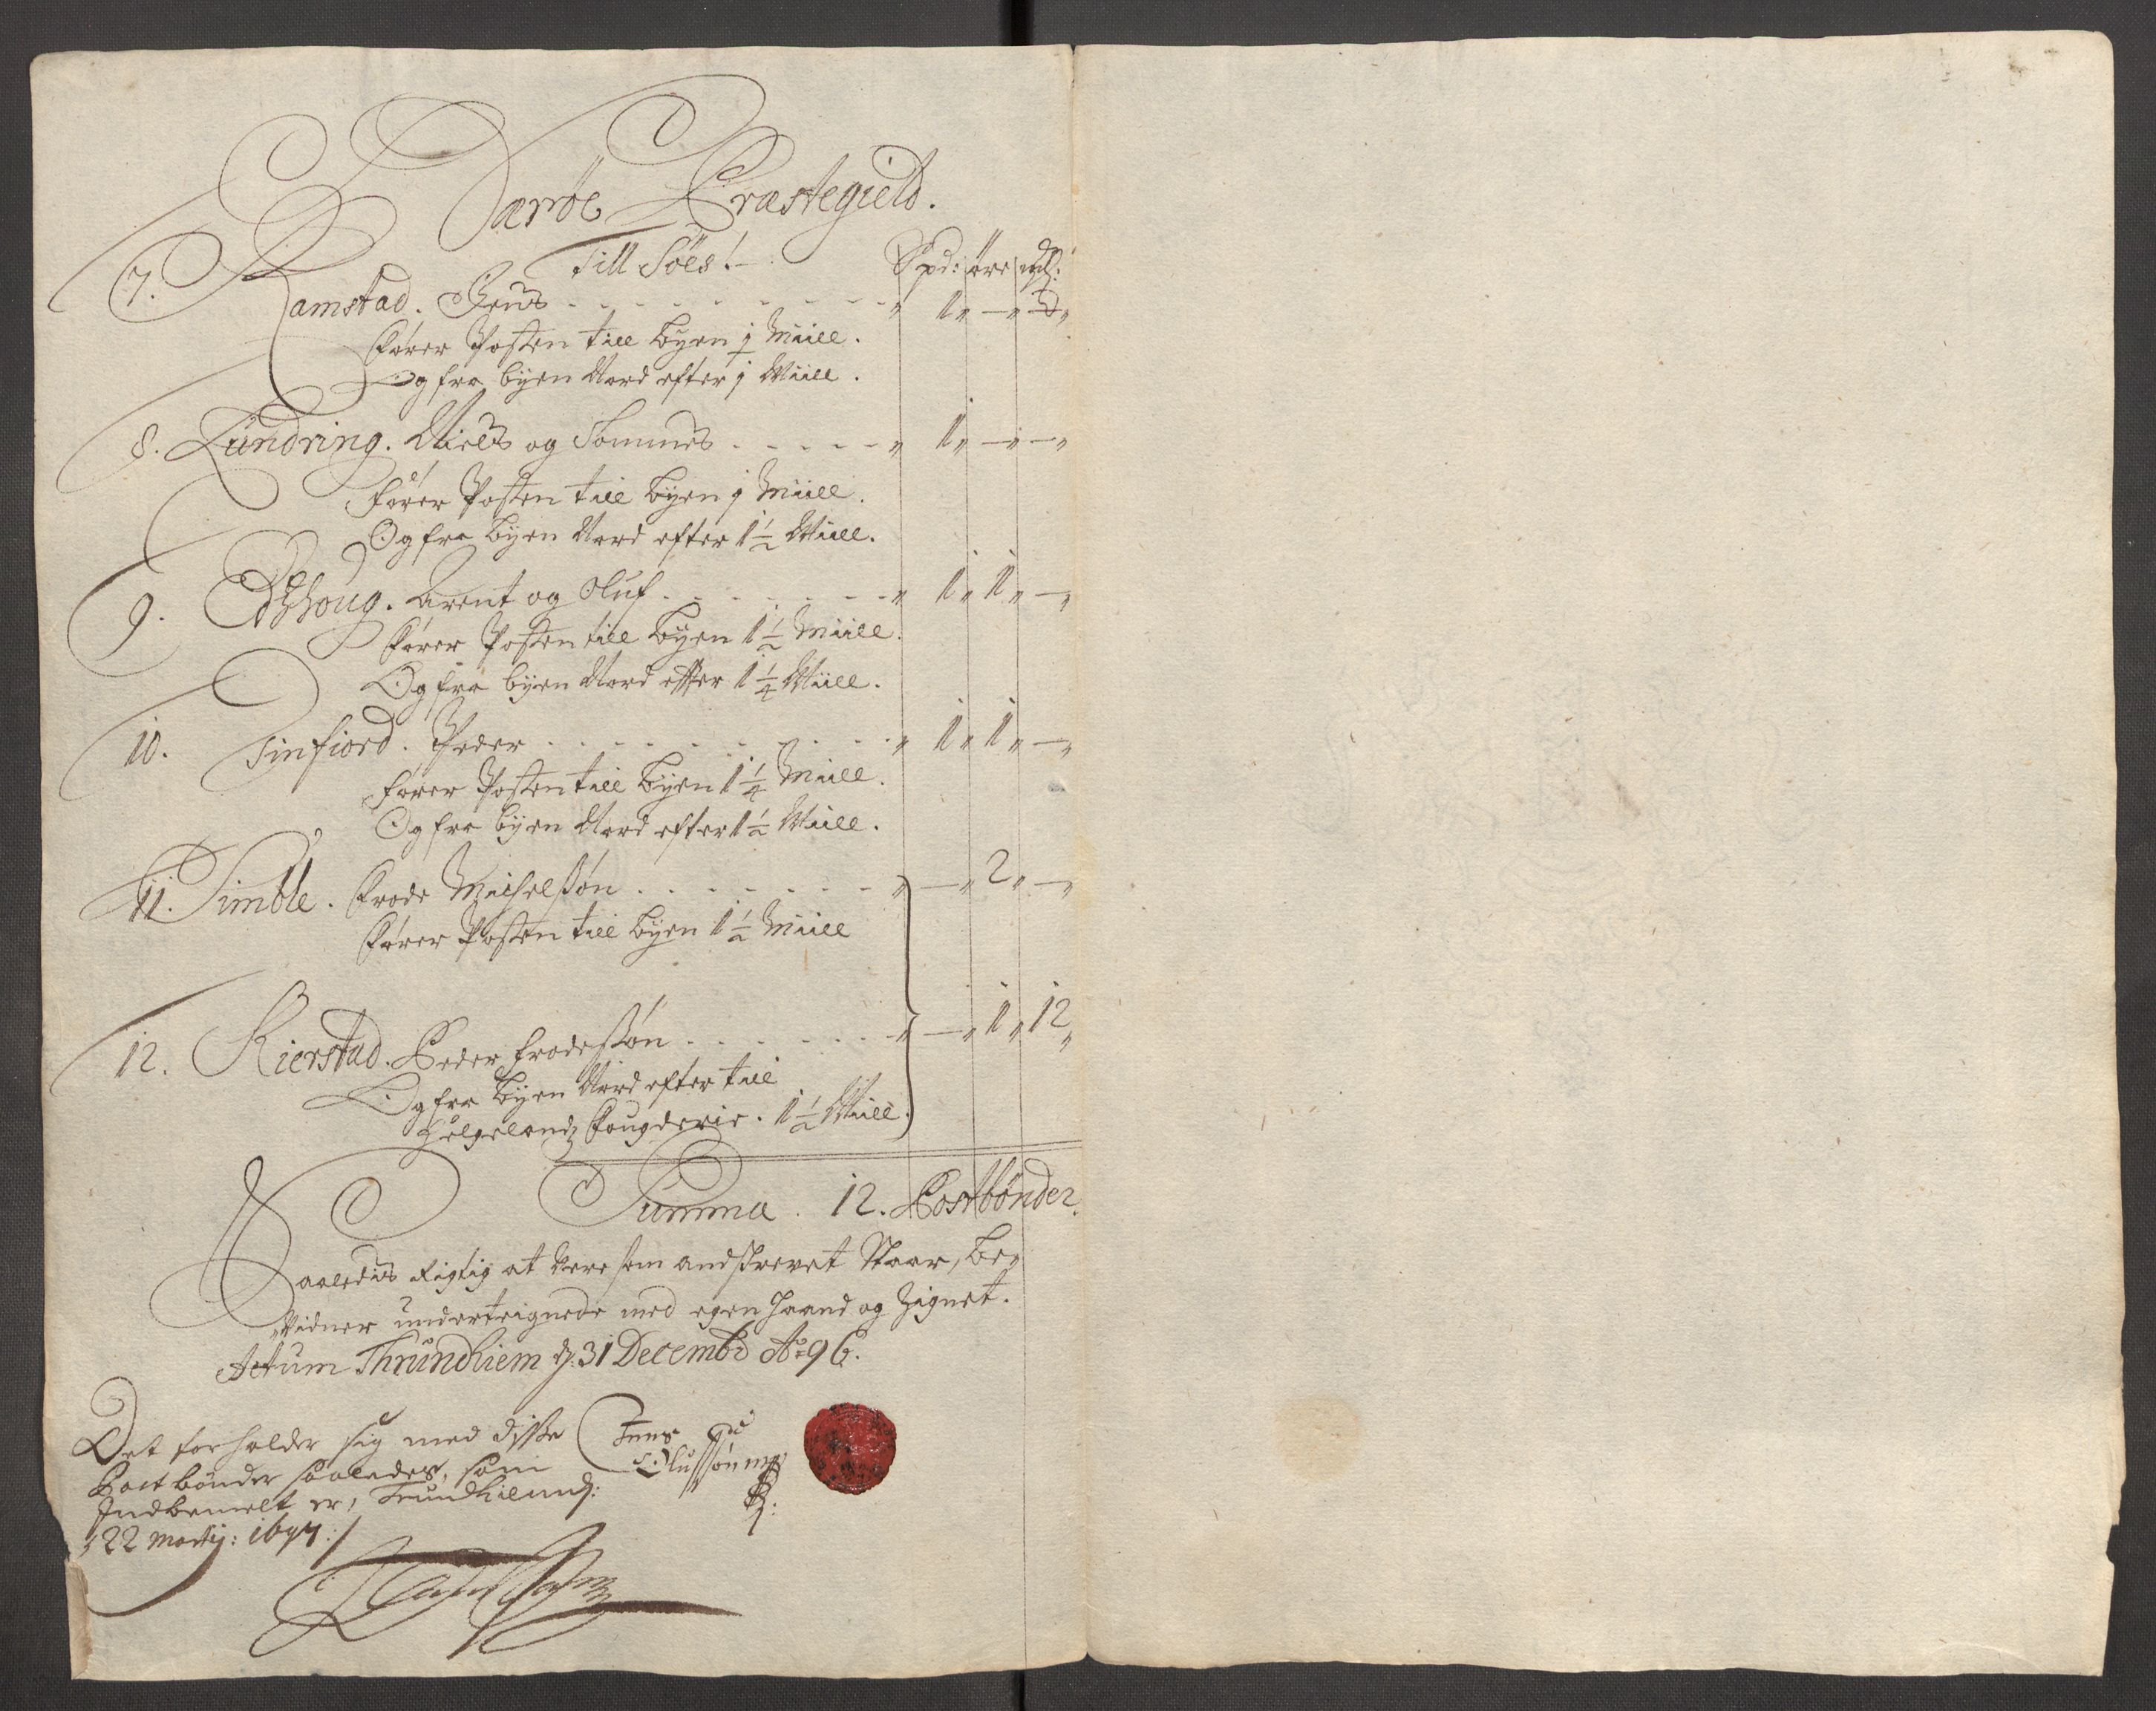 Nærøe Præstegield.
Till Söes! Spd: öre mk:
7. Ramstad. Jens - - - - - - - - - 1 „ — „ — „
fører Posten till byen 1 Miill.
Og fra byen Nord efter 1 Miill.
8. Lundring. Niels og Tommes - - - - - 1 „ — „ — „
fører Posten till byen 1 Miill.
Og fra byen Nord efter 1 1/2 Miill.
9. Edshoug. Arent og Oluf - - - - - - - 1 „ 1 „ — „
fører Posten till byen 1 1/2 Miill.
Og fra byen Nord effter 1 1/4 Miill.
10. Finfiord. Peder - - - - - - - - - - 1 „ 1 „ — „
fører Posten till byen 1 1/4 Miill.
Og fra byen Nord efter 1 1/2 Miill.
11. Simble. Frode Michelssøn - - - - - - - — „ 2 „ — „
fører Posten till byen 1 1/2 Miill
12. Kierstad. Peder Frodessøn - - - - - - - — „ 1 „ 12 „
Og fra byen Nord efter till
Helgelands Fougderie. 1 1/2 Miill.
Summa. 12. Postbønder.
Saaledis Rigtig at Være som andskrevet Staar, be„
Vidner underteignede med egen haand og Zignet.
Actum Thrundhiem d. 31 Decembr Ao 96.
Det forholder sig med disse
Postbønder saaledes, som
Indbemelt er, Trundhiemb:
d 22 Martij: 1697:
Jens
Olufssøn mp